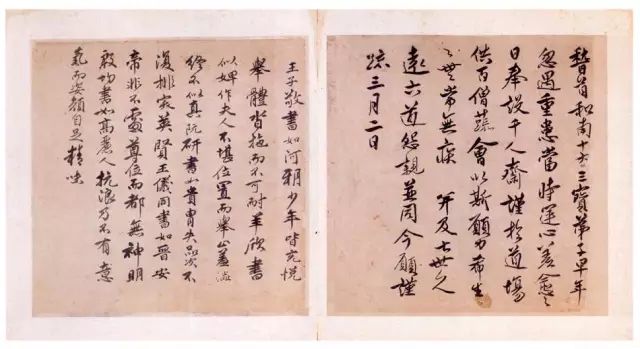 稽首和南十方三寶弟子早年
忽遇重患當時運心差愈之
日奉設千人齋謹於道場
供百僧蔬會以斯願力希生
々世々常無疾 并及七世久
遠六道怨親並同今願謹
疏三月二日
王子敬書如河朔少年皆充悦
舉體沓拖而不可耐羊欣書
似婢作夫人不堪位置而舉止羞澀
終不似真阮研書如貴胄失品次不
復排突英賢王儀同書如晉安
帝非不處尊位而都無神明
殷均書如高麗人抗浪乃不有意
氣而姿顏自足精味